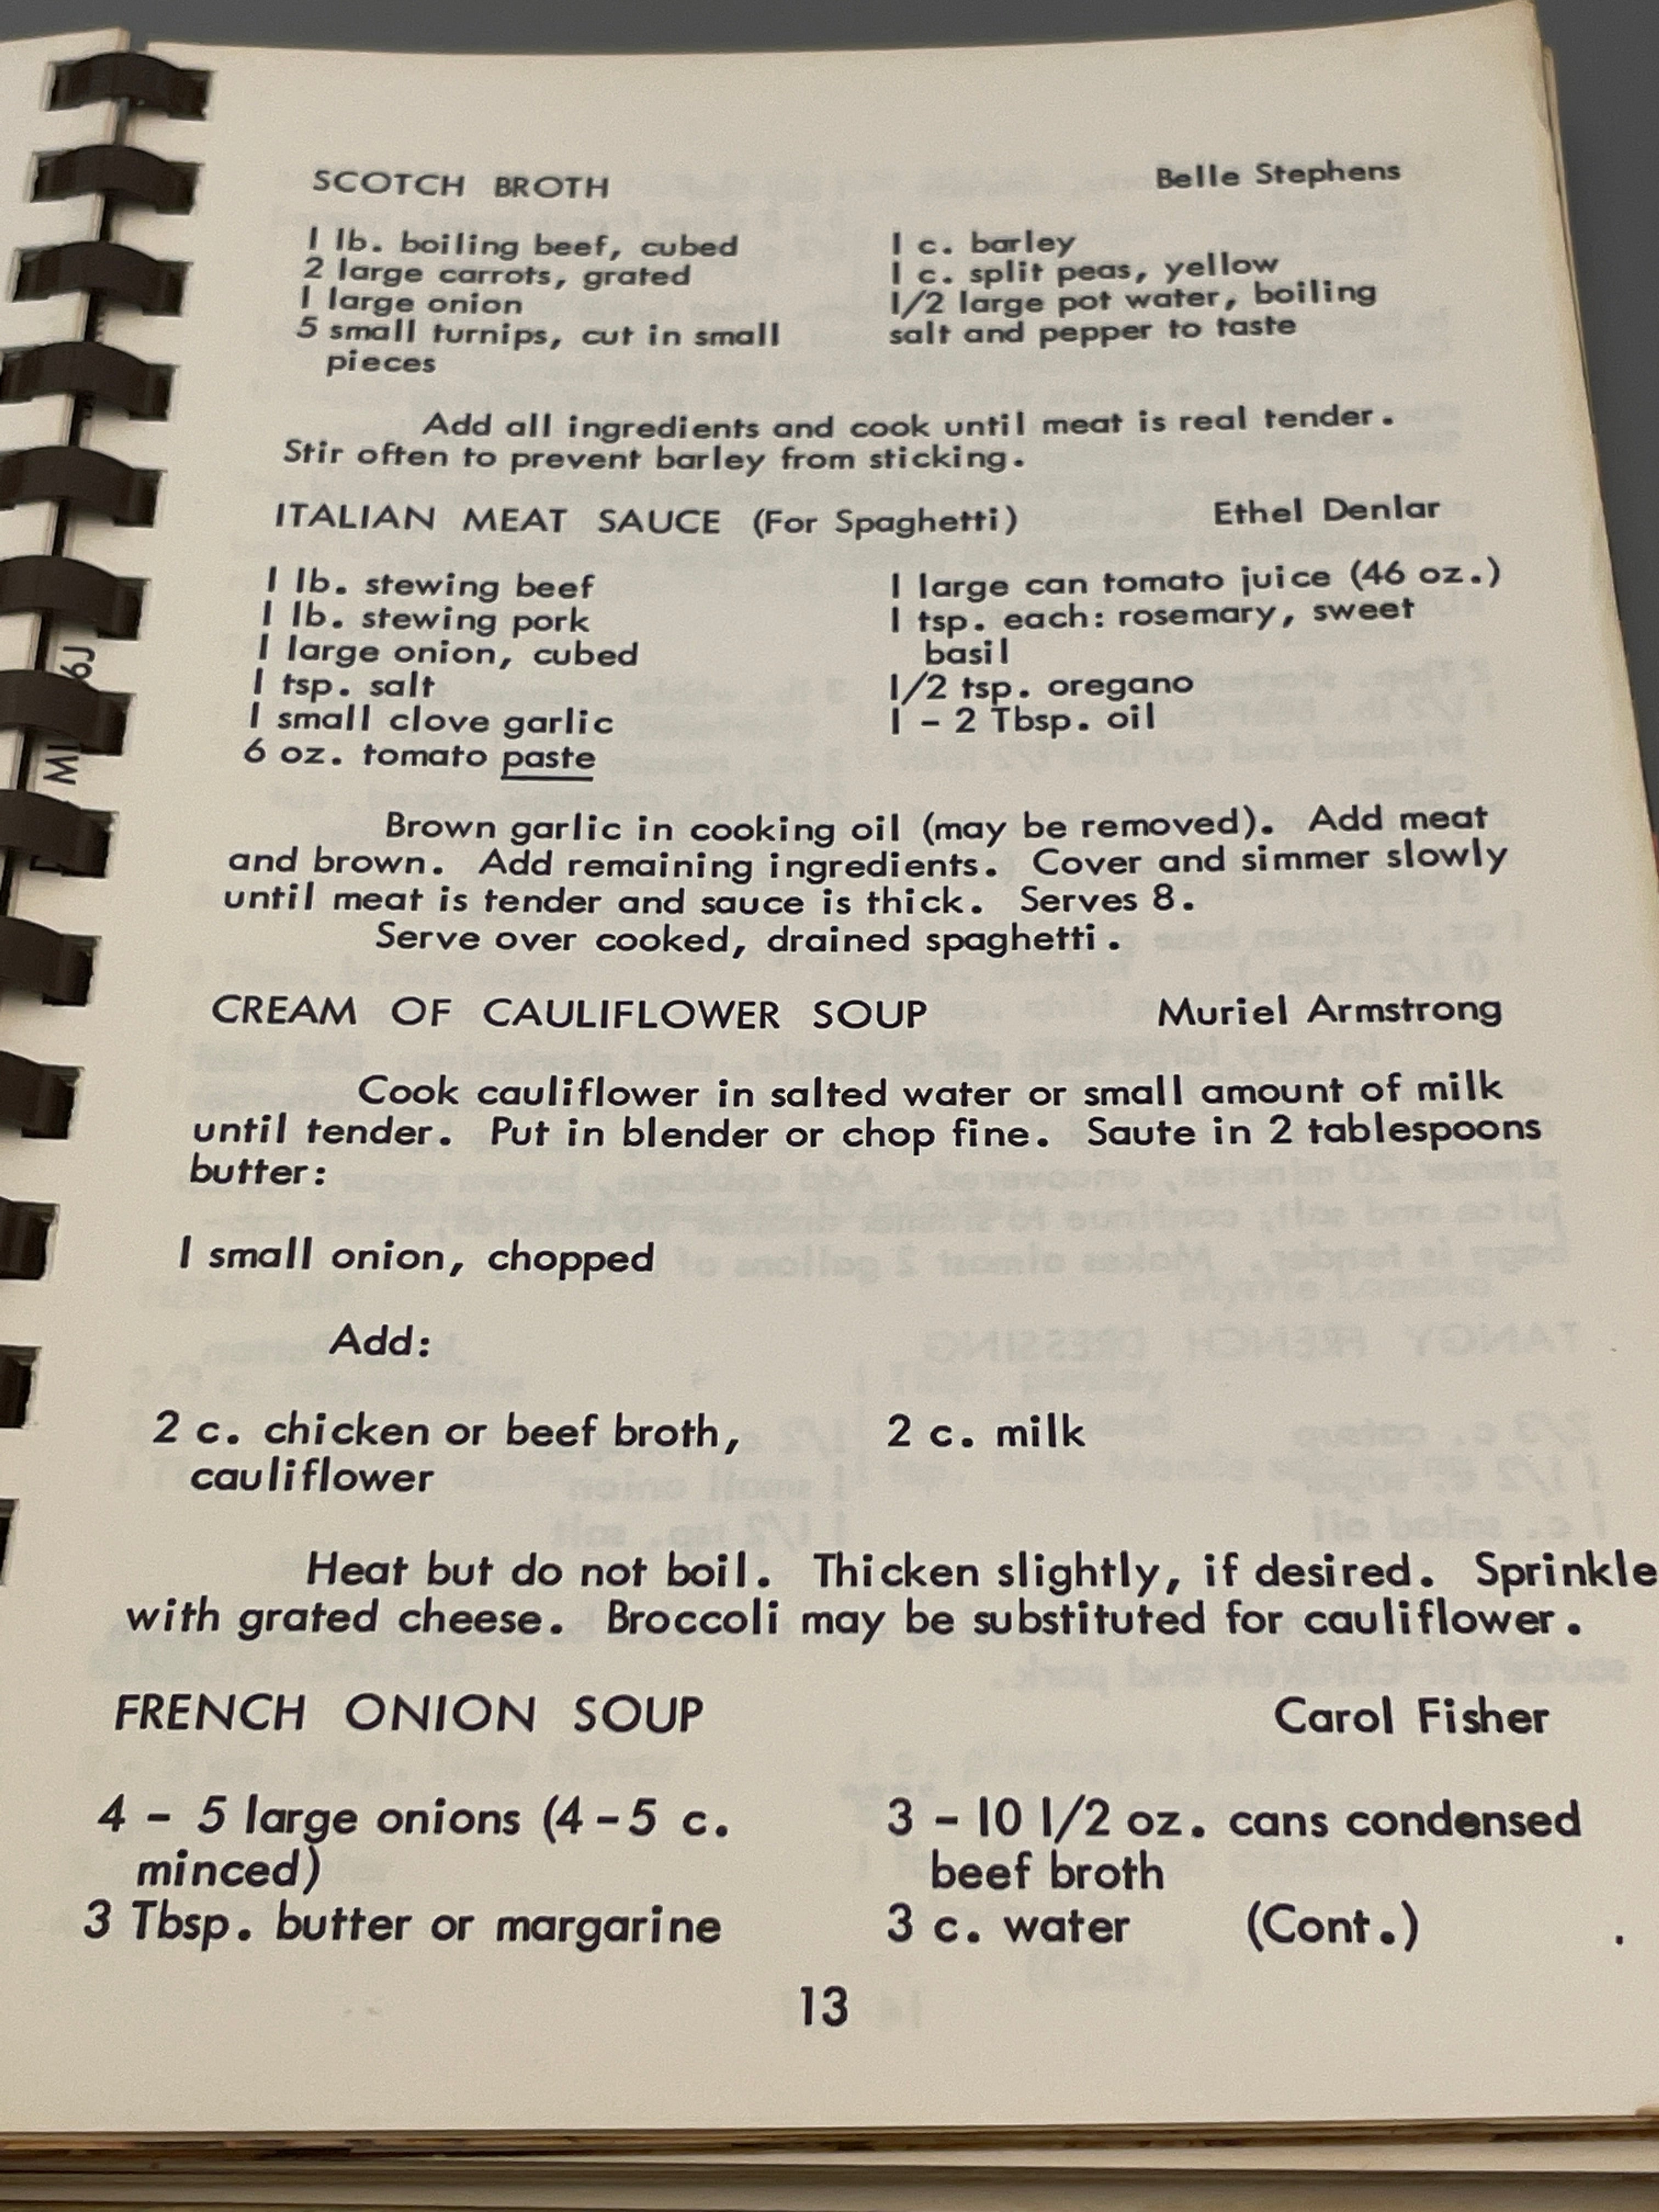 SCOTCH BROTH Belle Stephens
1 lb. boiling beef, cubed 1 c. barley
2 large carrots, grated 1 c. split peas, yellow
1 large onion 1/2 large pot water, boiling
5 small turnips, cut in small salt and pepper to taste
pieces
Add all ingredients and cook until meat is real tender.
Stir often to prevent barley from sticking.
ITALIAN MEAT SAUCE (For Spaghetti) Ethel Denlar
1 lb. stewing beef 1 large can tomato juice (46 oz.)
1 lb. stewing pork 1 tsp. each: rosemary, sweet
1 large onion, cubed basil
1 tsp. salt 1/2 tsp. oregano
1 small clove garlic 1 - 2 Tbsp. oil
6 oz. tomato paste
Brown garlic in cooking oil (may be removed). Add meat
and brown. Add remaining ingredients. Cover and simmer slowly
until meat is tender and sauce is thick. Serves 8.
Serve over cooked, drained spaghetti.
CREAM OF CAULIFLOWER SOUP Muriel Armstrong
Cook cauliflower in salted water or small amount of milk
until tender. Put in blender or chop fine. Saute in 2 tablespoons
butter:
1 small onion, chopped
Add:
2 c. chicken or beef broth, 2 c. milk
cauliflower
Heat but do not boil. Thicken slightly, if desired. Sprinkle
with grated cheese. Broccoli may be substituted for cauliflower.
FRENCH ONION SOUP Carol Fisher
4 - 5 large onions (4-5 c. 3 - 10 1/2 oz. cans condensed
minced) beef broth
3 Tbsp. butter or margarine 3 c. water (Cont.)
13